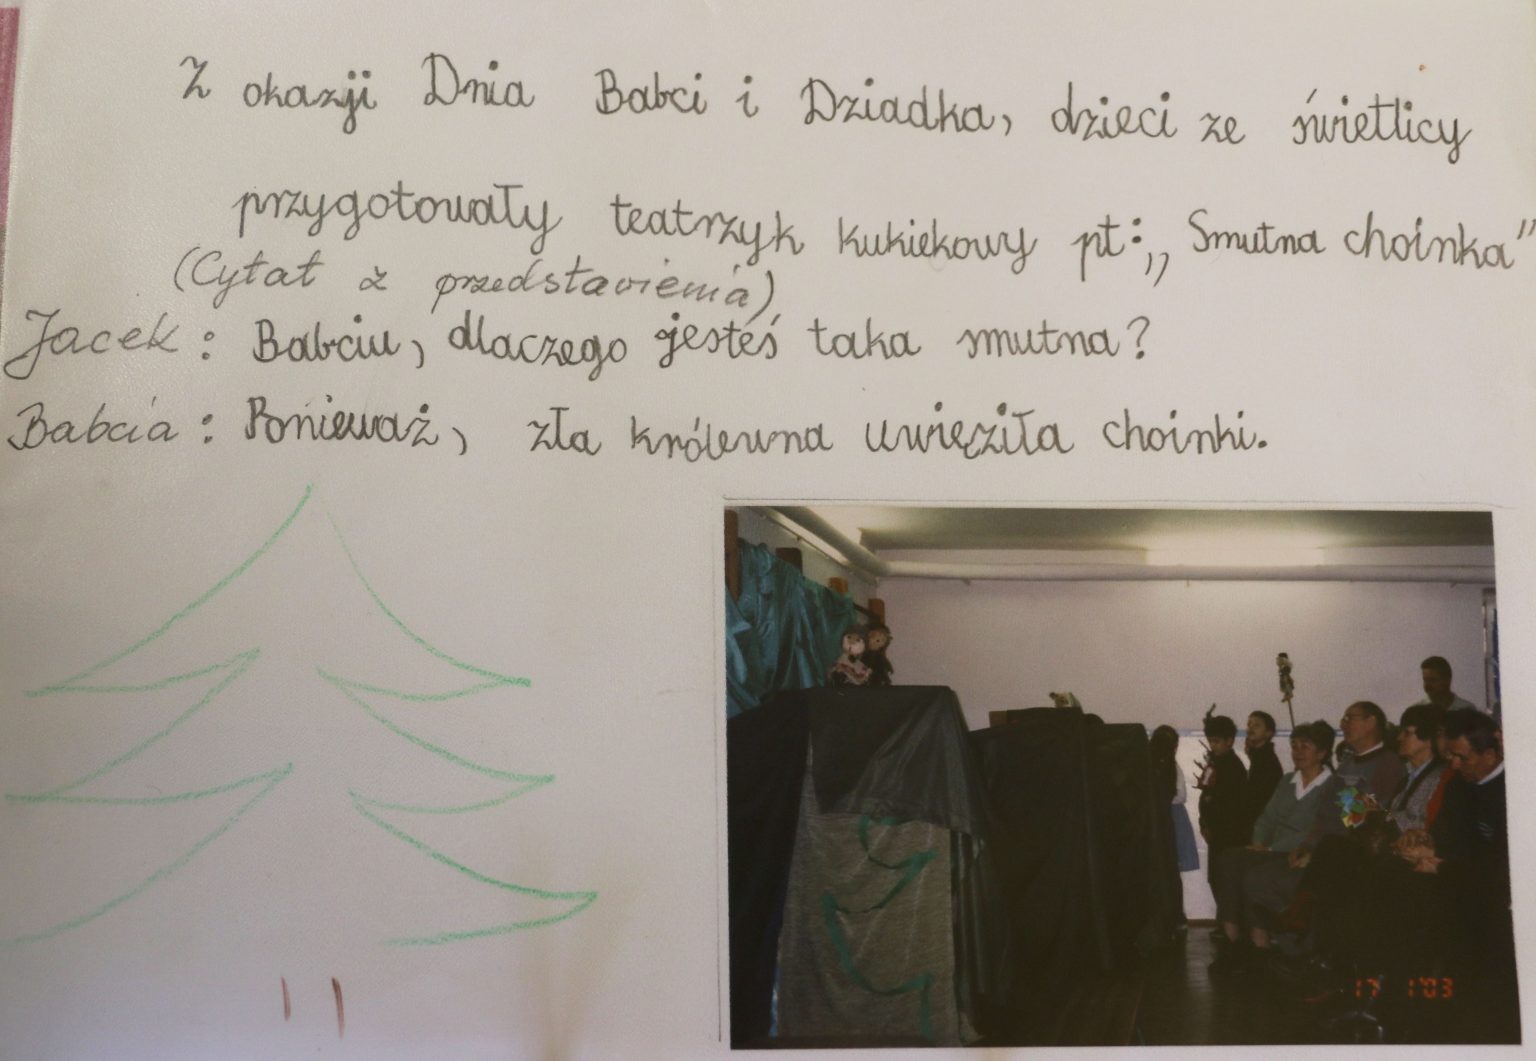 Z okazji Dnia Babci i Dziadka, dzieci ze świetlicy
przygotowały teatrzyk kukiełkowy pt:,, Smutna choinka"
(Cytat z przedstawienia)
Jacek: Babciu, dlaczego jesteś taka smutna?
Babcia: Ponieważ, zła królewna uwięziła choinki.
17 1'03